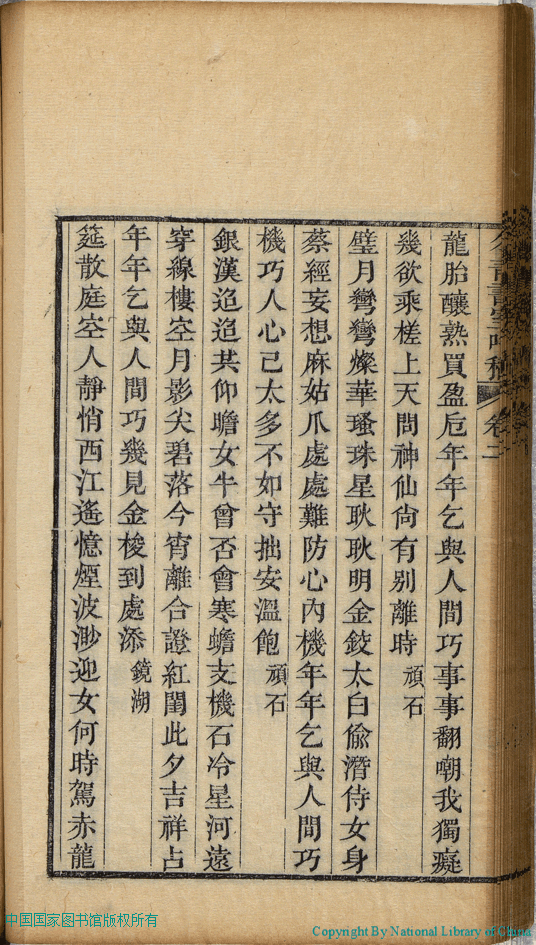 卷二
龍胎釀熟買盈卮年年乞與人間巧事事翻嘲我獨癡
幾欲乘槎上天問神仙尙有別離時 頑石
璧月彎彎燦華瑵珠星耿耿明金鉸太白偸潛侍女身
蔡經妄想麻姑爪處處難防心內機年年乞與人間巧
機巧人心已太多不如守拙安溫飽 頑石
銀漢迢迢共仰瞻女牛曾否會寒蟾支機石冷星河遠
穿線樓空月影尖碧落今宵離合證紅閨此夕吉祥占
年年乞與人間巧幾見金梭到處添 鏡湖
筵散庭空人靜悄西江遙憶煙波渺迎女何時駕赤龍
中国国家图书馆版权所有
Copyright By National Library of China